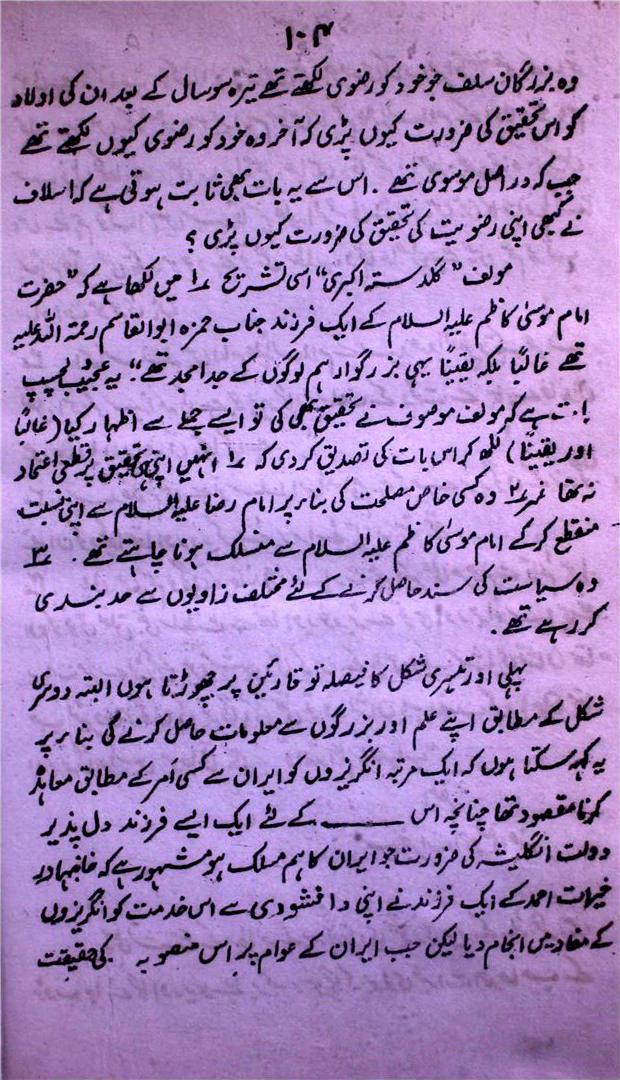 ۱۰۴
وہ بزرگان سلف جو خود کو رضوی لکھتے تھے تیرہ سو سال کے بعد ان کی اولاد
کو اس تحقیق کی ضرورت کیوں پڑی کہ آخر وہ خود کو رضوی کیوں لکھتے تھے
جب کہ در اصل موسوی تھے ۔ اس سے یہ بات بھی ثابت ہوتی ہے کہ اسلاف
نے کبھی اپنی رضویت کی تحقیق کی ضرورت کیوں پڑی ؟
مولف "گلدستہ اکبری" اسی تشریح ۱؍ میں لکھا ہے کہ "حضرت
امام موسیٰ کاظم علیہ السلام کے ایک فرزند جناب حمزہ ابوالقاسم رحمتہ اللہ علیہ
تھے غالبًا بلکہ یقینًا یہی بزرگوار ہم لوگوں کے جد امجد تھے"۔ یہ عجیب دلچسپ
بات ہے کہ مولف موصوف نے تحقیق بھی کی تو ایسے جملے سے اظہار کیا (غالبًا
اور یقینًا) لکھ کر اس بات کی تصدیق کر دی کہ ۱؍ انہیں اپنی تحقیق پر قطعی اعتماد
نہ تھا نمبر ۲؍ وہ کسی خاص مصلحت کی بناء پر امام رضا علیہ السلام سے اپنی نسبت
منقطع کرکے امام موسیٰ کاظم علیہ السلام سے منسلک ہونا چاہتے تھے ۔ ۳؍
وہ سیاست کی سند حاصل کرنے کے لئے مختلف زاویوں سے حد بندی
کر رہے تھے ۔
پہلی اور تیسری شکل کا فیصلہ تو قارئین پر چھوڑتا ہوں البتہ دوسری
شکل کے مطابق اپنے علم اور بزرگوں سے معلومات حاصل کرنے کی بناء پر
یہ کہہ سکتا ہوں کہ ایک مرتبہ انگریزوں کو ایران سے کسی اَمر کے مطابق معاہدہ
کرنا مقصود تھا چنانچہ اس ــــــ کے لئے ایک ایسے فرزند دل پذیر
دولت انگلیشہ کی ضرورت جو ایران کا ہم مسلک ہو مشہور ہے کہ خانبہادر
خیرات احمد کے ایک فرزند نے اپنی دانشودی سے اس خدمت کو انگریزوں
کے مفاد میں انجام دیا لیکن جب ایران کے عوام پر اس منصوبہ کی حقیقت